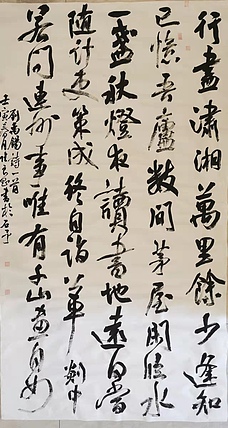 行盡瀟湘萬里餘少逢知
己憶吾廬數間茅屋閒臨水
一盞秋燈夜讀書地遠何當
隨計吏策成終自詣公車剡中
若問連州事唯有千山畫不如
劉禹錫詩一首
壬寅 月 書於石